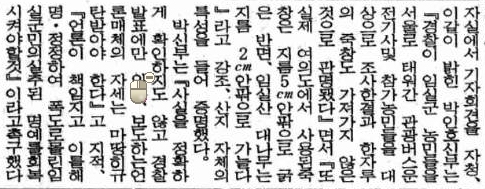 자실에서 기자회견을 자청,
이같이 밝힌 박인호신부는
「경찰이 임실군 농민들을
서울로 태워간 관광버스운
전기사및 참가농민들을 대
상으로 조사한결과 한자루
의 죽창도 가져가지 않은
것으로 판명됐다」면서 「또
실제 여의도에서 사용된죽
창은 지름5cm안팎으로 굵
은 반면, 임실산 대나무는
지름 2cm안팎으로 가늘다
」라고 강조, 산지 자체의
특성을 들어 증명했다.
박신부는 「사실을 정확하
게 확인하지도 않고 경찰
발표에만 보도하는언
론매체의 자세는 마땅히규
탄받아야 한다」고 지적,
「언론이 책임지고 이를해
명·정정하여 폭도로몰린임
실군민의실추된 명예를회복
시켜야할것」이라고촉구했다